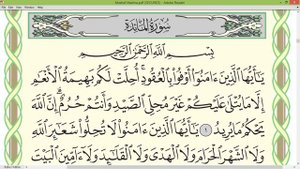 سُورَةُ المَائِدَةِ
بِسْمِ ٱللَّهِ ٱلرَّحْمَٰنِ ٱلرَّحِيمِ
يَٰٓأَيُّهَا ٱلَّذِينَ ءَامَنُوٓاْ أَوۡفُواْ بِٱلۡعُقُودِۚ أُحِلَّتۡ لَكُم بَهِيمَةُ ٱلۡأَنۡعَٰمِ
إِلَّا مَا يُتۡلَىٰ عَلَيۡكُمۡ غَيۡرَ مُحِلِّي ٱلصَّيۡدِ وَأَنتُمۡ حُرُمٌۗ إِنَّ ٱللَّهَ
يَحۡكُمُ مَا يُرِيدُ ١ يَٰٓأَيُّهَا ٱلَّذِينَ ءَامَنُواْ لَا تُحِلُّواْ شَعَٰٓئِرَ ٱللَّهِ
وَلَا ٱلشَّهۡرَ ٱلۡحَرَامَ وَلَا ٱلۡهَدۡيَ وَلَا ٱلۡقَلَٰٓئِدَ وَلَآ ءَآمِّينَ ٱلۡبَيۡتَ